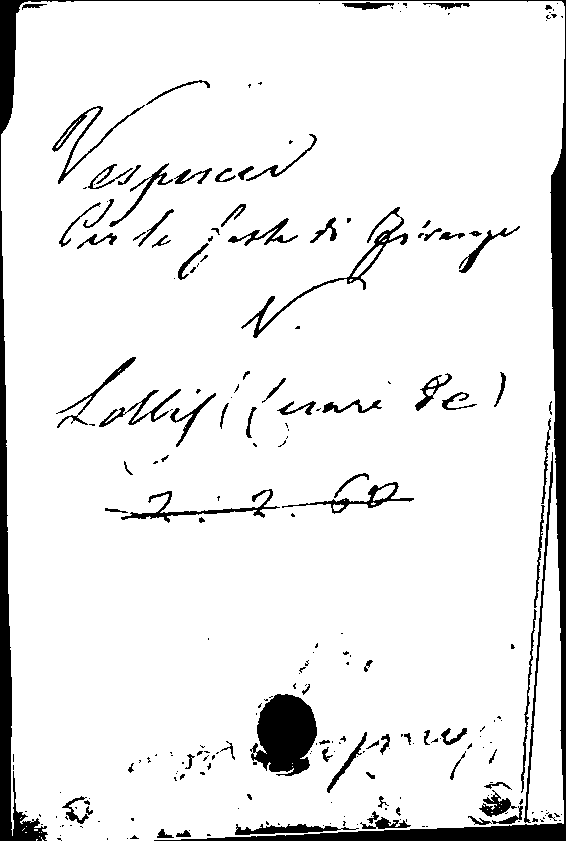 Vespucci
Per le feste di Firenze
V.
Lollis (Cesare de)
2. 2. 60